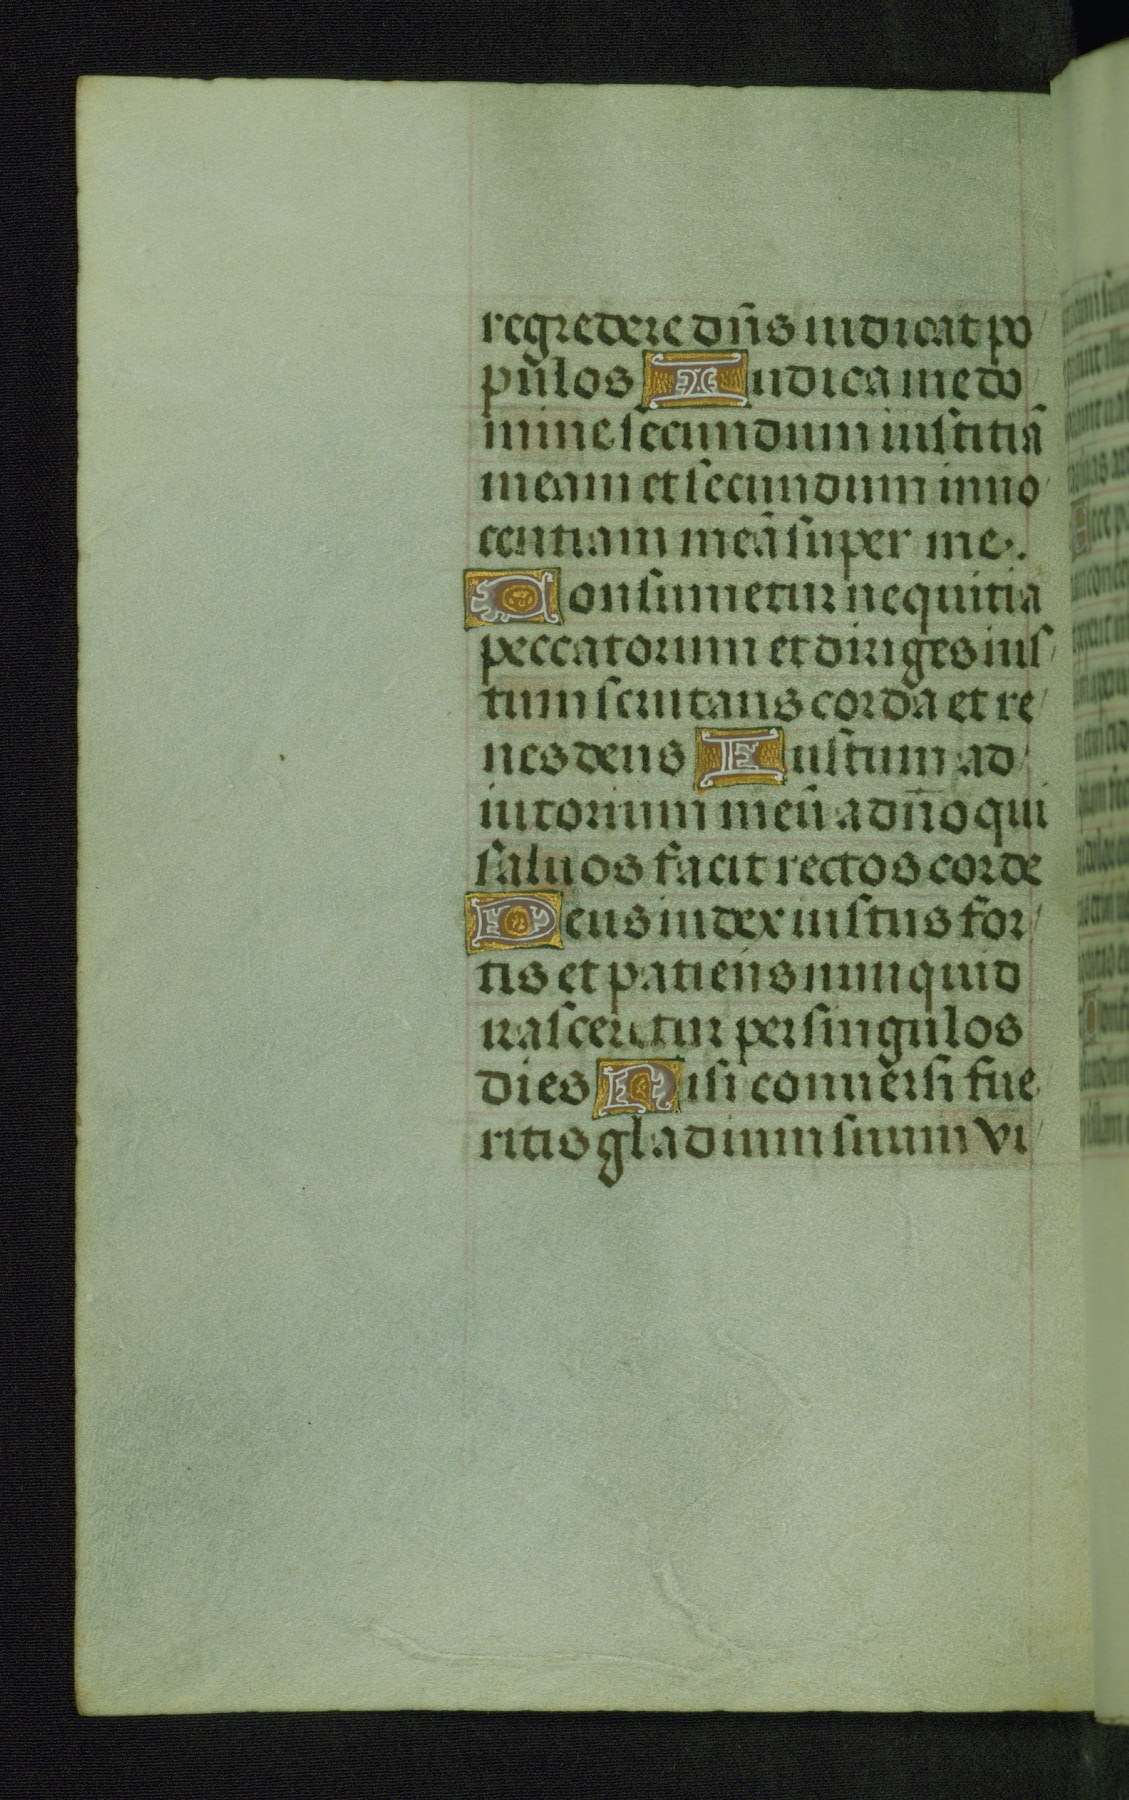 regredere dn̄s iudicat po/
pūlos Iudica me do/
mine secundum iustitiā
meam et secundum inno/
centiam meā super me.
Consumetur nequitia
peccatorum et diriges ius/
tum scrutans corda et re/
nes deus Eustum ad/
iutorium meū a dn̄o qui
saluos facit rectos corde
Deus iudex iustus for/
tis et patiens nunquid
irascetur per singulos
dies Nisi conuersi fue
ritis gladium suum vi/